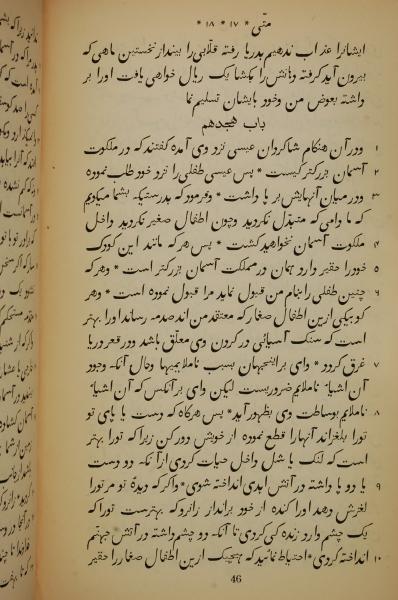 متی * ۱۷ * ۱۸ *
ایشانرا عذاب ندهیم بدریا رفته قلابی را بینداز نخستین ماهی که
بیرون آید گرفته دهانش را بگشا یک ریال خواهی یافت اورا بر
داشته بعوض من وخود بایشان تسلیم نما
باب هیجدهم
۱ ودر آن هنکام شاکردان عیسی نزد وی آمده کفتند که در ملکوت
۲ آسمان بزرکتر کیست * پس عیسی طفلی را نزد خود طلب نموده
۳ ودر میان آنهایش بر پا داشت * وفرمود که بدرستیکه بشما میکویم
که ما دامی که متبدل نکردید وچون اطفال صغیر نکردید داخل
۴ ملکوت آسمان نخواهید کشت * پس هر که مانند این کودک
۵ خودرا حقیر دارد همان در مملکت آسمان بزرکتر است * وهر که
۶ چنین طفلی را بنام من قبول نماید مرا قبول نموده است * وهر
کو بیکی ازین اطفال صغار که معتقد من اند صدمه رساند اورا بهتر
است که سنک آسیائی در کردن وی معلق باشد ودر قعر دریا
۷ غرق کردد * وای بر اینجهان بسبب ناملایمیها وحال آنکه وجود
آن اشیاء ناملایم ضروریست لیکن وای بر آنکس که آن اشیاء
۸ ناملایم بوساطت وی بظهور آید * پس هرکاه که دست یا پای تو
تورا بلغزاند آنهارا قطع نموده از خویش دور کن زیرا که تورا بهتر
است که لنک یا شل داخل حیات کردی از آنکه دو دست
۹ یا دو پا داشته در آتش ابدی انداخته شوی * واکر که دیدهٔ تو مر تورا
لغزش دهد اورا کنده از خود برانداز زانرو که بهترست تورا که
یک چشم وارد زنده کی کردی تا آنکه دو چشم داشته در آتش جهنم
۱۰ انداخته کردی * احتیاط نمائید که هیچیک ازین اطفال صغار را حقیر
46